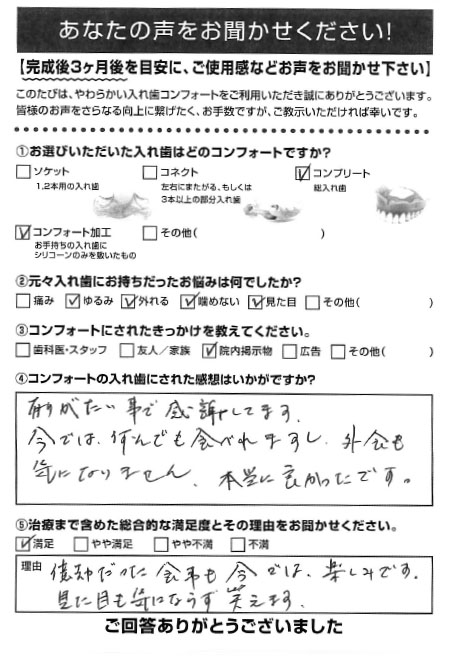 あなたの声をお聞かせください!
【完成後3ヶ月後を目安に、ご使用感などお声をお聞かせ下さい】
このたびは、やわらかい入れ歯コンフォートをご利用いただき誠にありがとうございます。
皆様のお声をさらなる向上に繋げたく、お手数ですが、ご教示いただければ幸いです。
①お選びいただいた入れ歯はどのコンフォートですか?
□ソケット □コネクト ☑コンプリート
1,2本用の入れ歯 左右にまたがる、もしくは 総入れ歯
3本以上の部分入れ歯
☑コンフォート加工 □その他( )
お手持ちの入れ歯に
シリコーンのみを敷いたもの
②元々入れ歯にお持ちだったお悩みは何でしたか?
□痛み ☑ゆるみ ☑外れる ☑噛めない ☑見た目 □その他( )
③コンフォートにされたきっかけを教えてください。
□歯科医・スタッフ □友人/家族 ☑院内掲示物 □広告 □その他( )
④コンフォートの入れ歯にされた感想はいかがですか?
有りがたい事で感謝してます。
今では、何んでも食べれますし、外食も
気になりません、本当に良かったです。
⑤治療まで含めた総合的な満足度とその理由をお聞かせください。
☑満足 □やや満足 □やや不満 □不満
理由 億劫だった食事も今では、楽しみです。
見た目も気にならず笑えます。
ご回答ありがとうございました